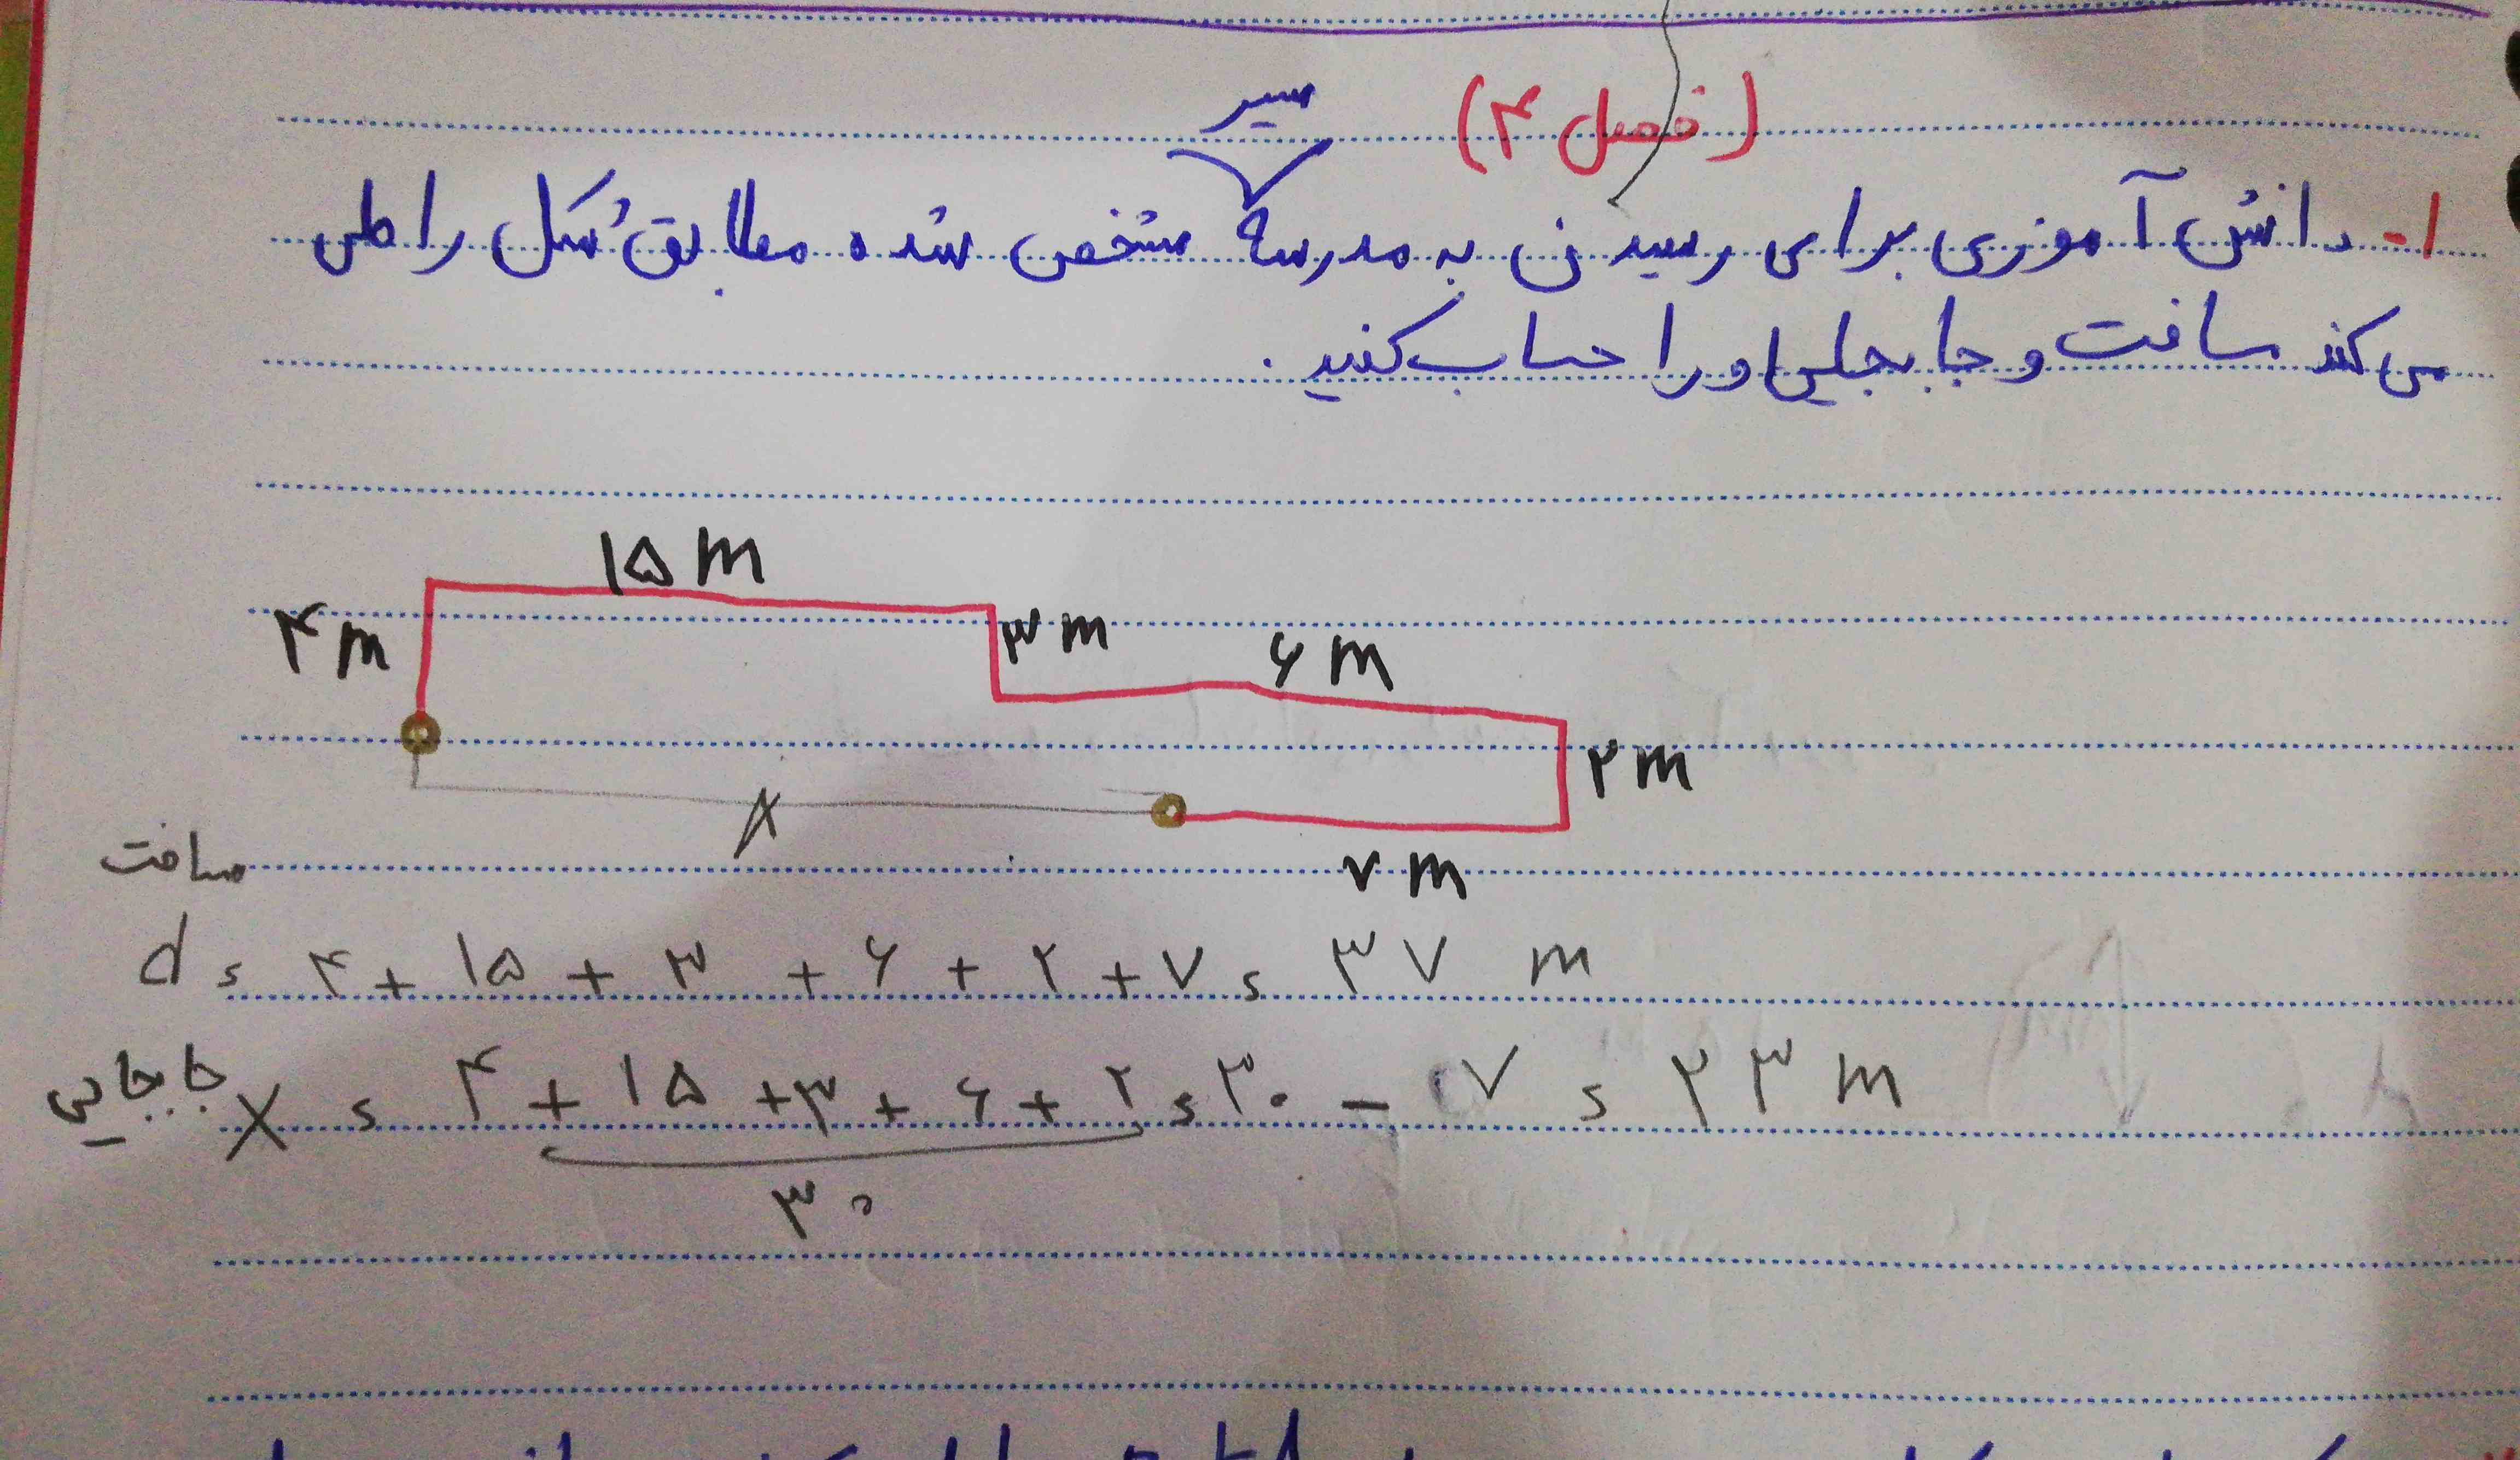 (فصل ۴)
مسیر
۱- دانش آموزی برای رسیدن به مدرسه مشخص شده مطابق شکل را طی
می کند مسافت و جا بجایی او را حساب کنید.
۱۵ m
۴ m
۳ m
۶ m
۲ m
x
۷ m
مسافت
d = ۴ + ۱۵ + ۳ + ۶ + ۲ + ۷ = ۳۷ m
جابجایی x = ۴ + ۱۵ + ۳ + ۶ + ۲ = ۳۰ - ۷ = ۲۳ m
۳۰